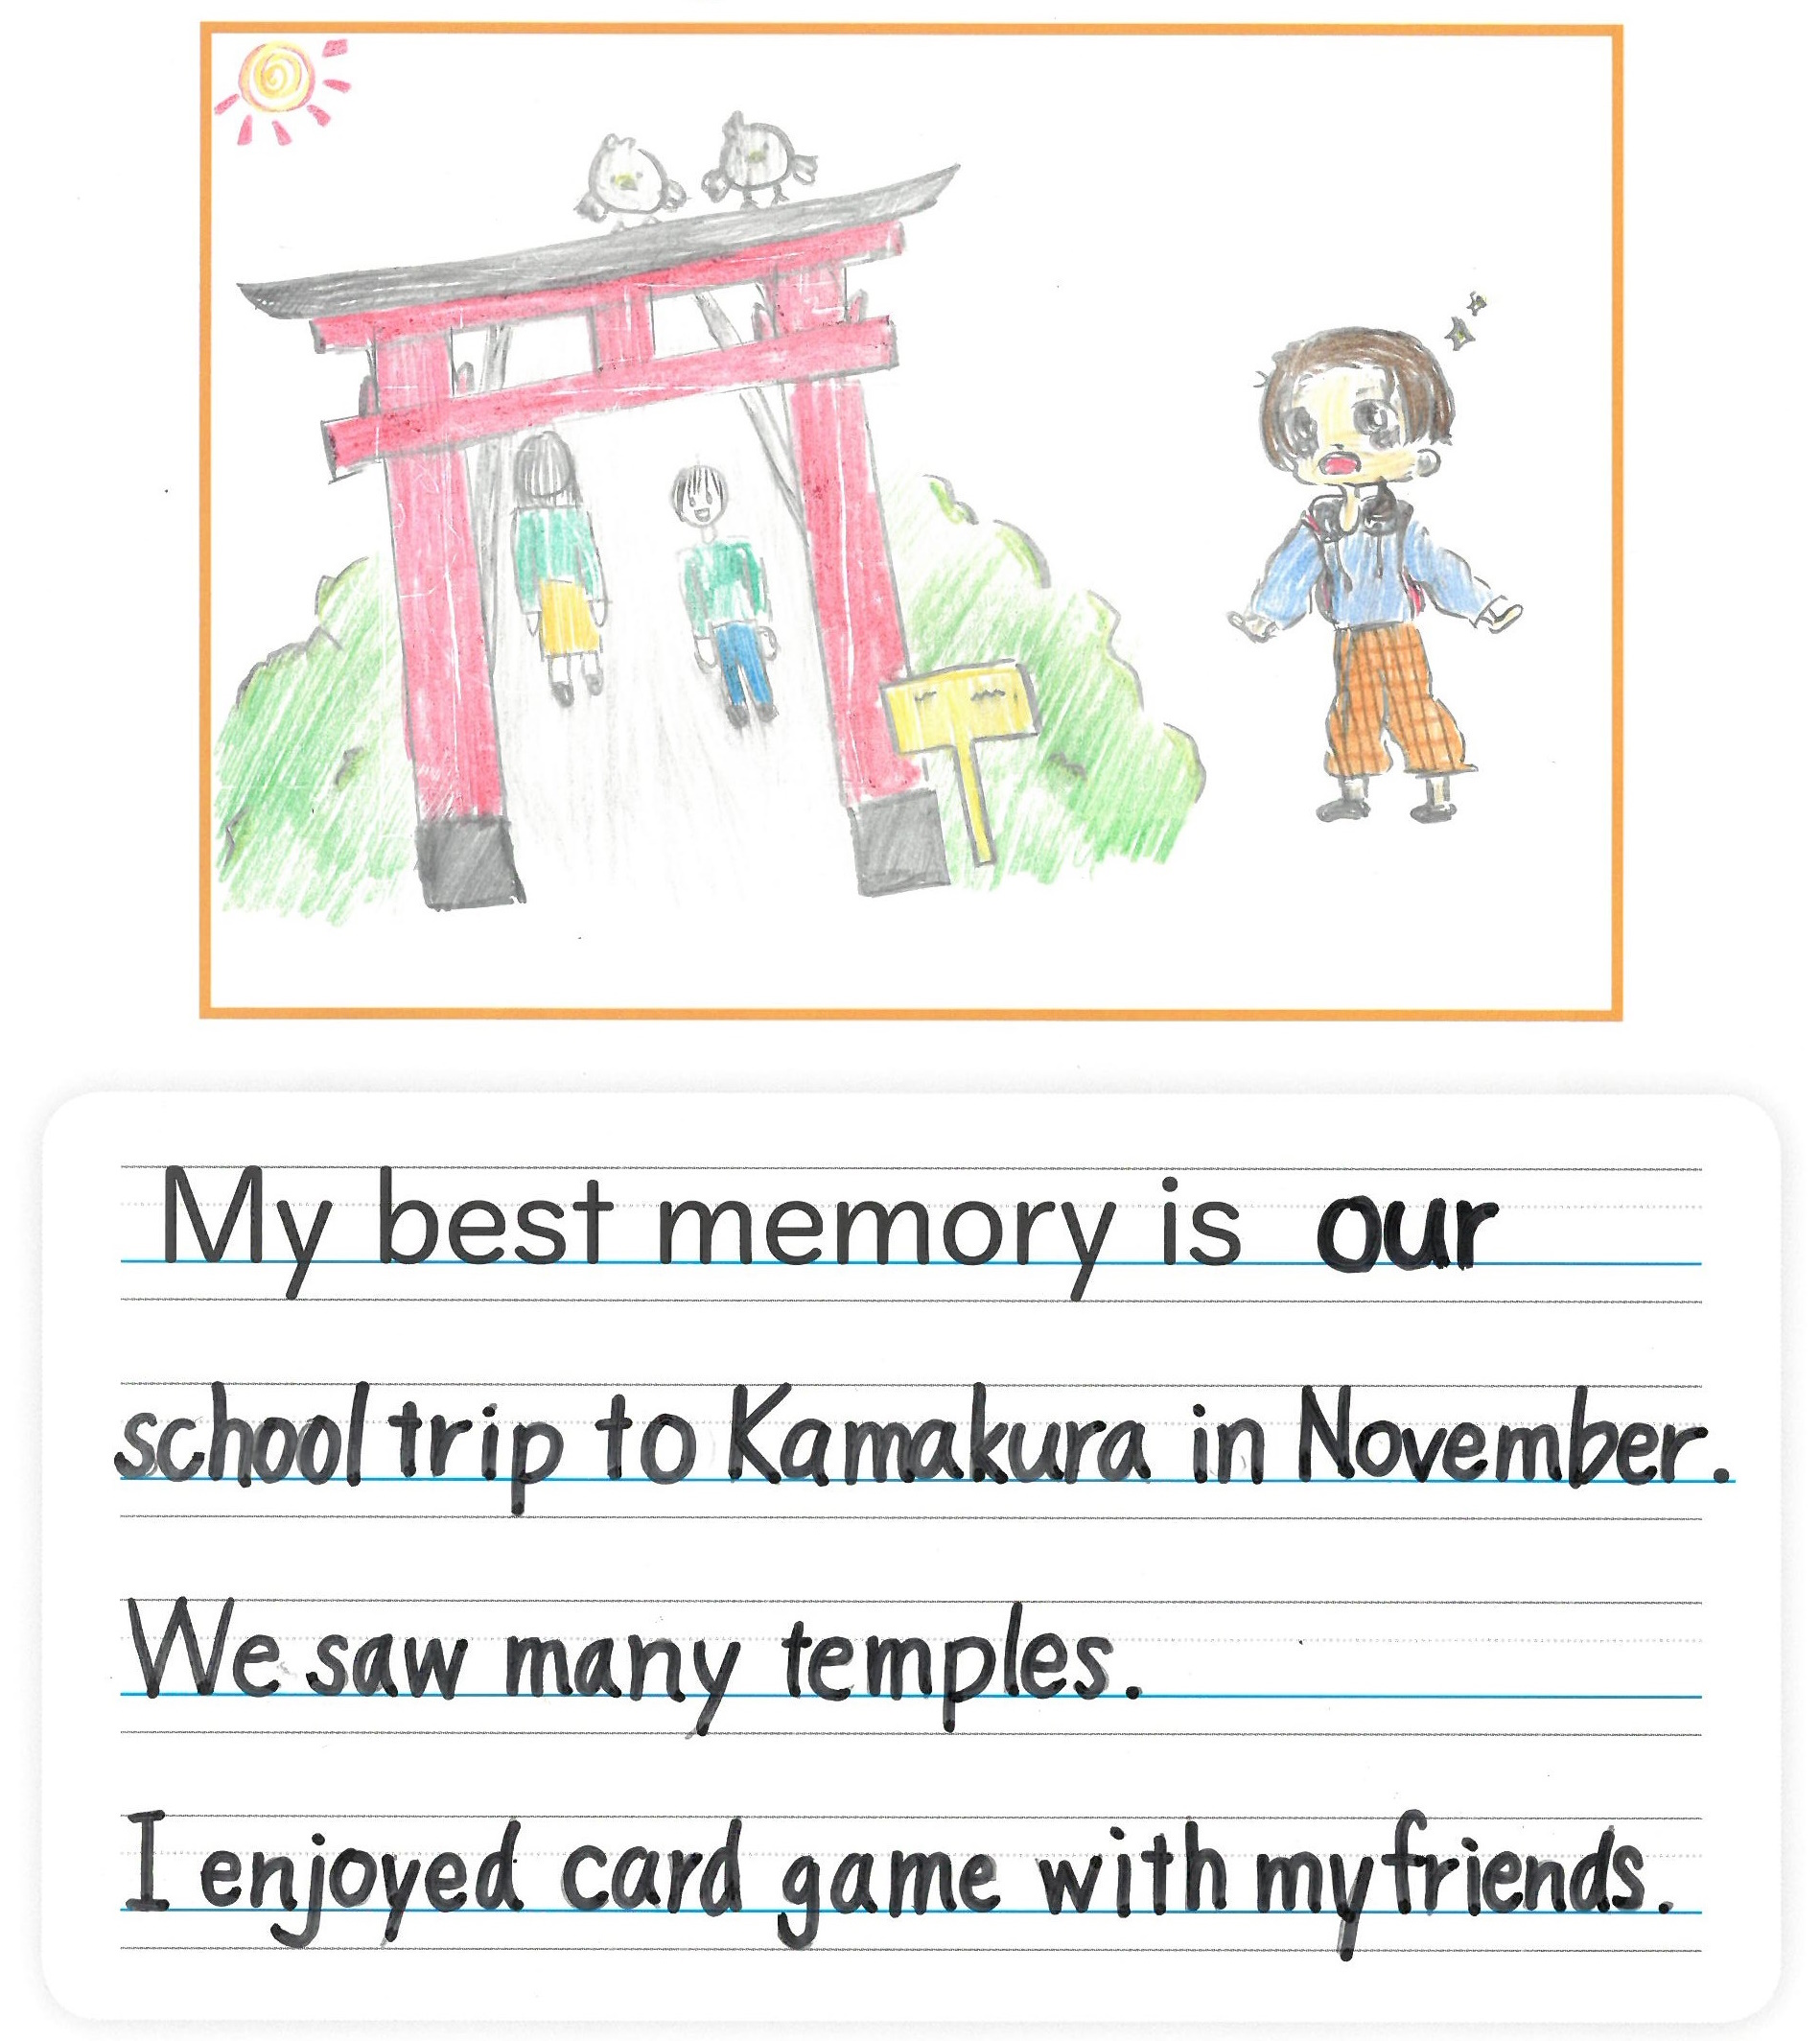 My best memory is our
school trip to Kamakura in November.
We saw many temples.
I enjoyed card game with my friends.